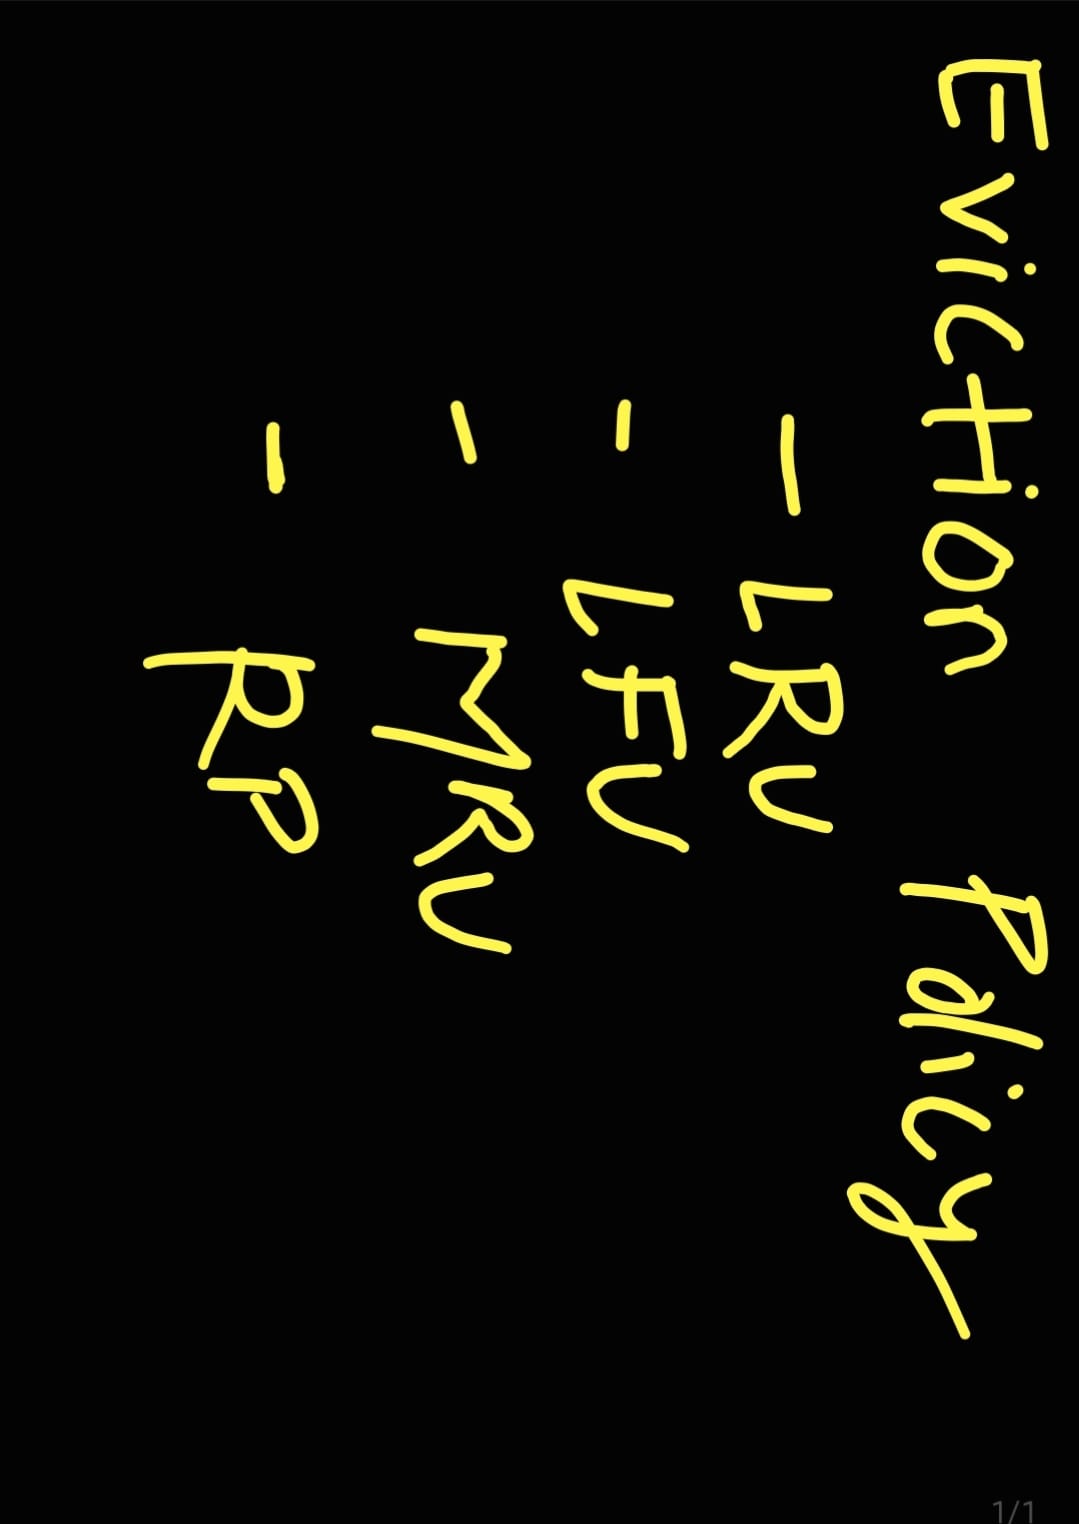 Eviction Policy
- LRU
- LFU
- MRU
- RP
1/1